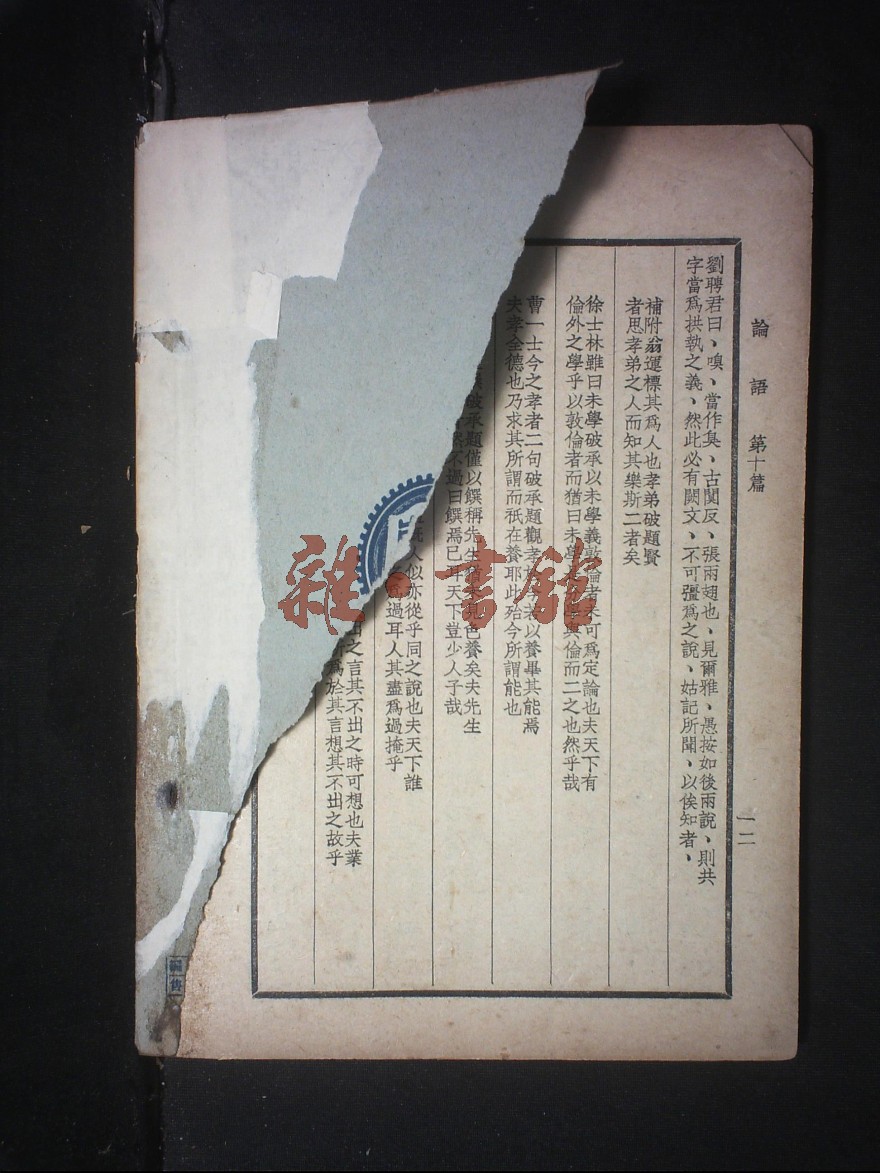 論語 第十篇
一二
劉聘君曰、嗅、當作臭、古闃反、張兩翅也、見爾雅、愚按如後兩說、則共
字當爲拱執之義、然此必有闕文、不可彊爲之說、姑記所聞、以俟知者、
補附翁運標其爲人也孝弟破題賢
者思孝弟之人而知其樂斯二者矣
徐士林雖曰未學破承以未學義敦倫者未可爲定論也夫天下有
倫外之學乎以敦倫者而猶曰未學與倫而二之也然乎哉
曹一士今之孝者二句破承題觀孝若以養畢其能焉
夫孝全德也乃求其所謂而祇在養耶此殆今所謂能也
破承題僅以饌稱先生色養矣夫先生
不過曰饌焉已耳天下豈少人子哉
人似亦從乎同之說也夫天下誰
爲過耳人其盡爲過掩乎
出之言其不出之時可想也夫業
爲於其言想其不出之故乎
雜·書館
編售